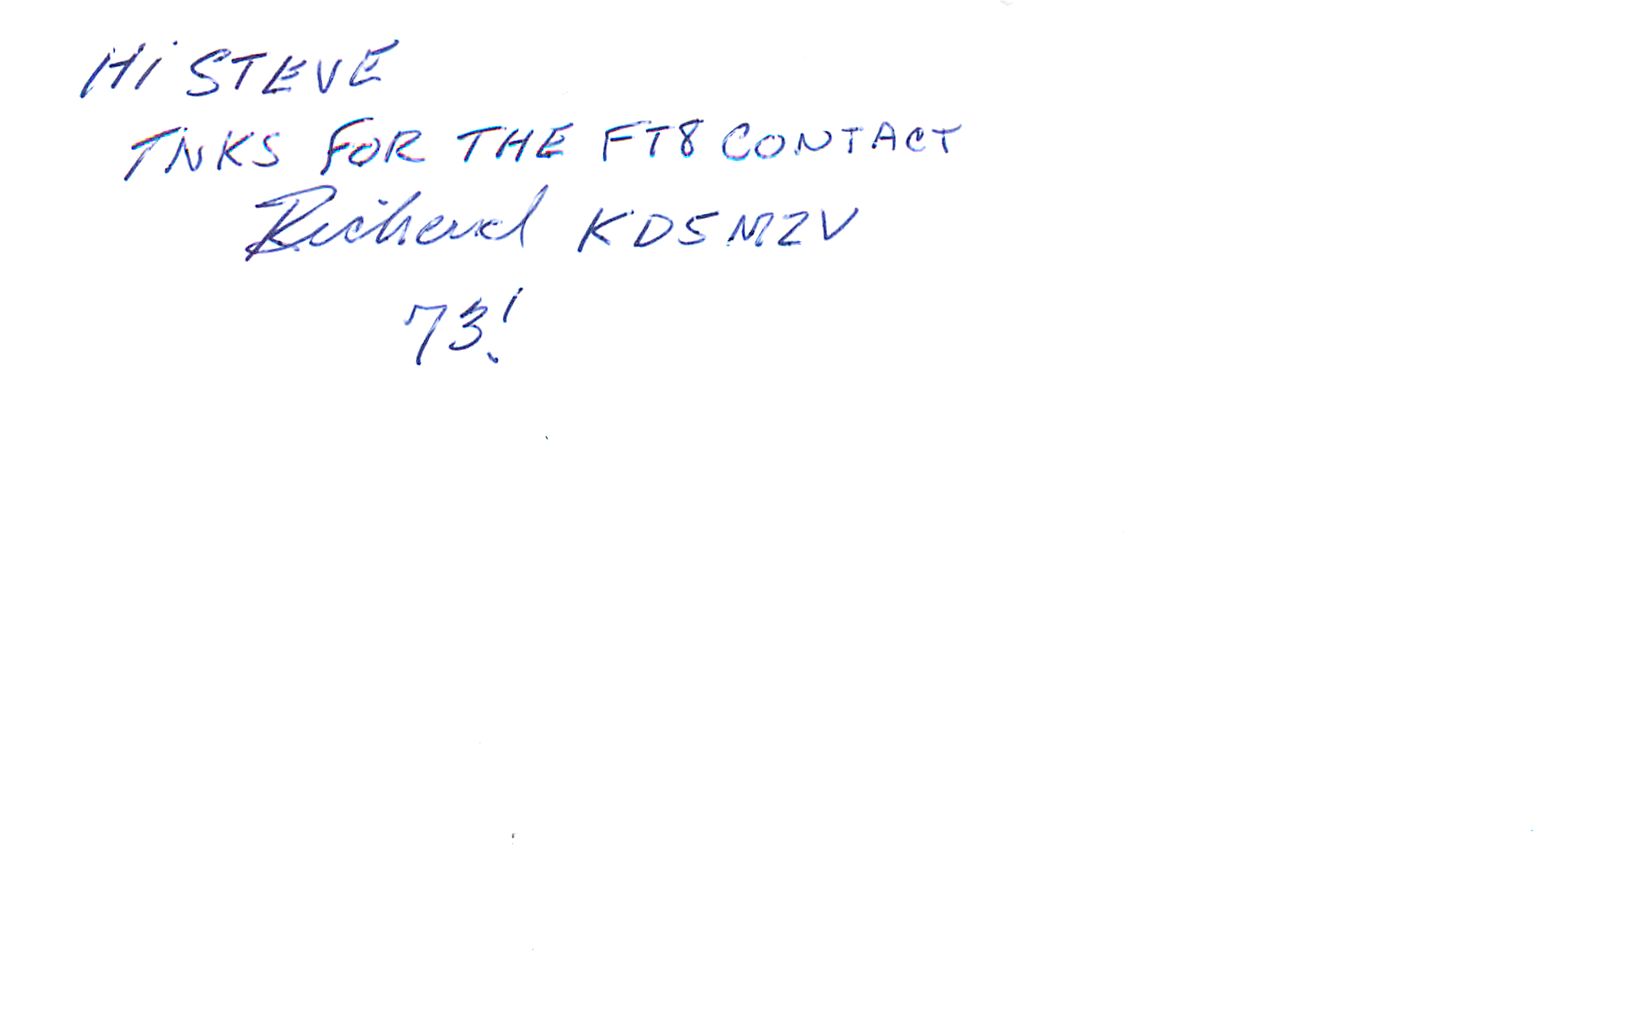 Hi STEVE
TNKS FOR THE FT8 CONTACT
Richard KD5MZV
73!